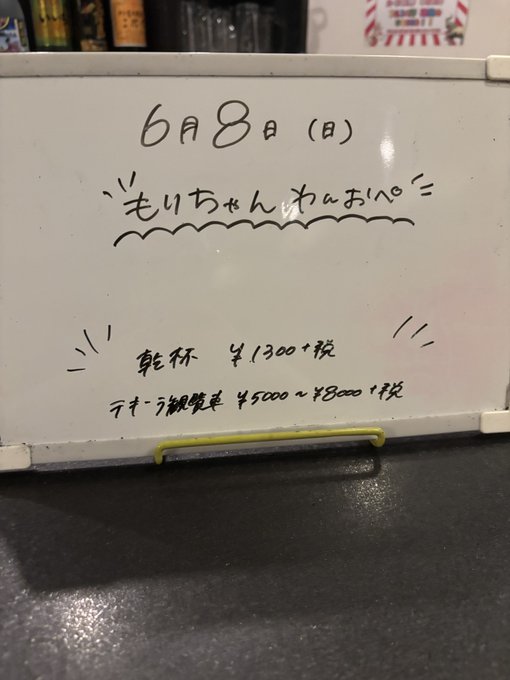 6月8日 (日)
もりちゃん わんおぺ
乾杯 ¥1300+税
テキーラ観覧車 ¥5000~¥8000+税